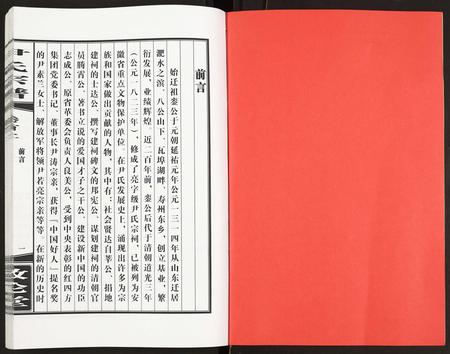 前言
始迁祖銮公于元朝延祐元年公元一三一四年从山东迁居
淝水之滨、八公山下、瓦埠湖畔、寿州东乡，创立基业，繁
衍发展，业绩辉煌。近二百年前，銮公后代于清朝道光三年
（公元一八二三年），修成了亮字级尹氏宗祠，已被列为安
徽省重点文物保护单位。在尹氏发展史上，涌现出许多为宗
族和国家做出贡献的人物，其中有：社会贤达自莘公、捐地
建祠的士达公、撰写建祠碑文的邦宪公、谋划建祠的清朝官
员腾霄公、著书立说的爱国才子之干公、建设新中国的功臣
志成公、原省革委会负责人良美公、受到中央表彰的红四方
集团党委书记、董事长尹涛宗亲、获得「中国好人」提名奖
的尹素兰女士、解放军将领尹若亮宗亲等等。在新的历史时
尹氏宗谱
卷首上
前言
一
敦伦堂